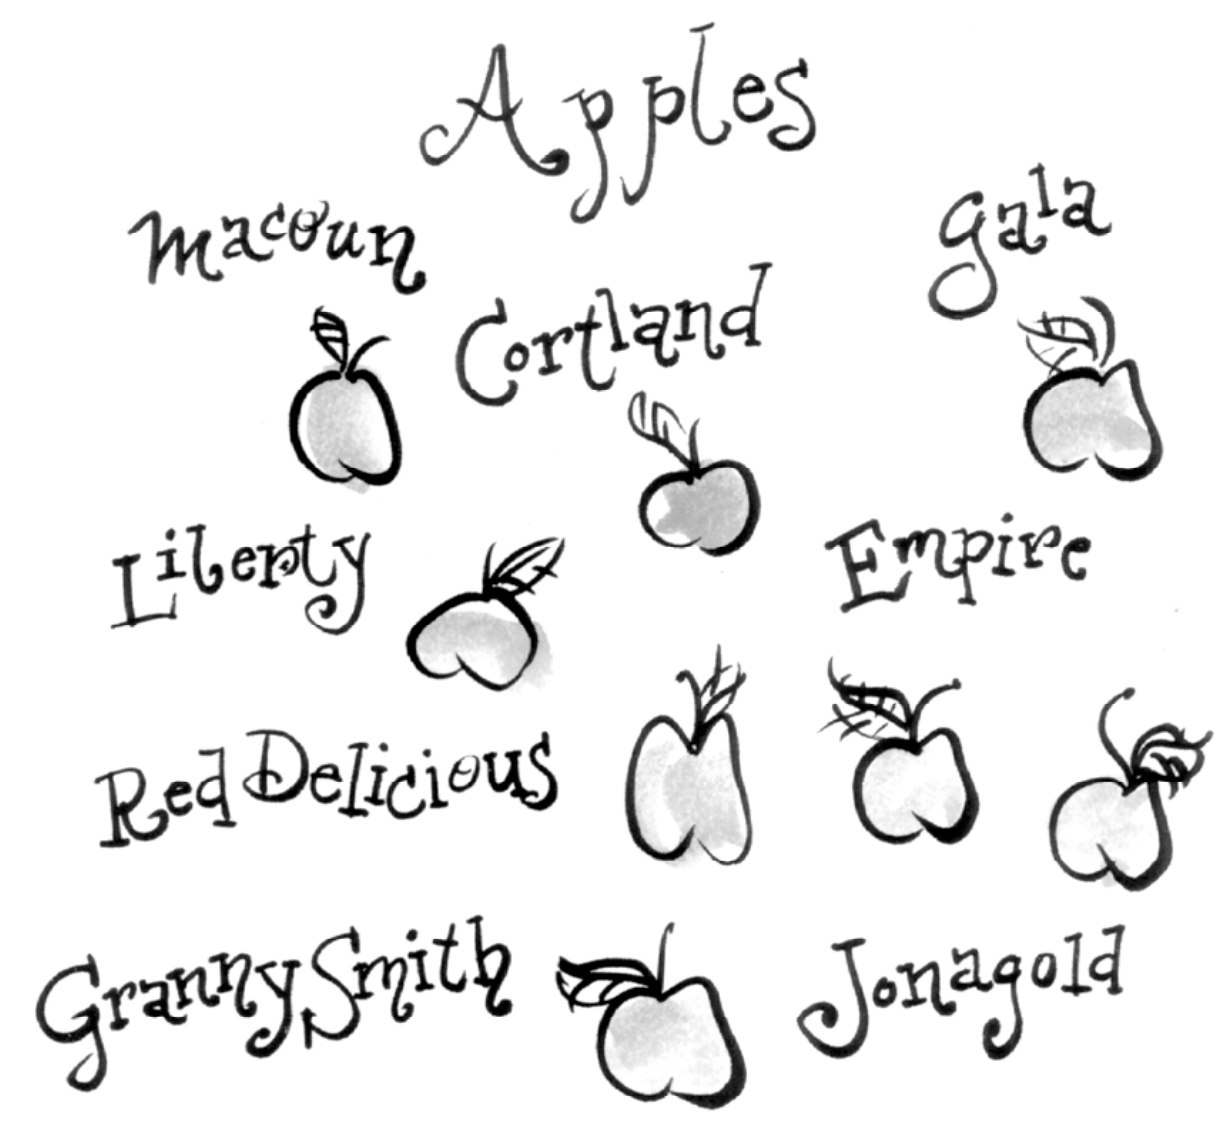 Apples
Macoun
Gala
Cortland
Liberty
Empire
Red Delicious
Granny Smith
Jonagold